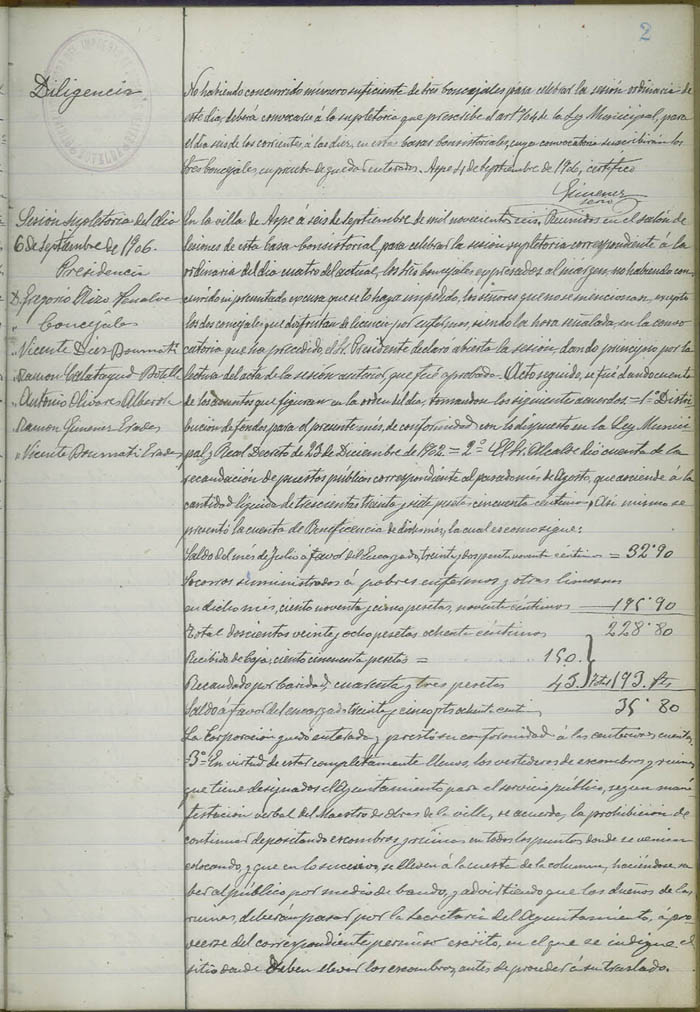 2
Diligencia
No habiendo concurrido número suficiente de tres Concejales para celebrar la sesión ordinaria de
este día, deberá convocarse á la supletoria que prescribe el artº 104 de la Ley Municipal, para
el día seis de los corrientes, á las diez, en estas Casas Consistoriales, cuya convocatoria suscribirán los
tres Concejales, en prueba de quedar enterados. Aspe 4 de Septiembre de 1906, certifico
Gimenez
Sesión supletoria del día
6 de Septiembre de 1906.
Presidencia
D. Gregorio Rizo
Concejales
" Vicente
" Ramon Calatayud Botella
" Antonio Olivares Alberola
" Ramon Gimenez Erades
" Vicente Erades
En la villa de Aspe á seis de Septiembre de mil novecientos seis. Reunidos en el salón de
sesiones de esta Casa-Consistorial, para celebrar la sesión supletoria correspondiente á la
ordinaria del día cuatro del actual, los tres Concejales expresados al margen, no habiendo con-
currido ni presentado excusa que se lo haya impedido, los señores que no se mencionan, excepto
los dos concejales que disfrutan de licencia por enfermos, siendo la hora señalada, en la convo-
catoria que ha precedido, el Sr. Presidente declaró abierta la sesión, dando principio por la
lectura del acta de la sesión anterior, que fué aprobada. Acto seguido, se fué dando cuenta
de los asuntos que figuran en la orden del día, tomándose los siguientes acuerdos. = 1º Distri-
bución de fondos para el presente mes, de conformidad con lo dispuesto en la Ley Munici-
pal y Real Decreto de 23 de Diciembre de 1902. = 2º El Sr. Alcalde dió cuenta de la
recaudación de puestos públicos correspondiente al pasado mes de Agosto, que asciende á la
cantidad líquida de trescientas treinta y siete pesetas cincuenta céntimos. Asi mismo se
presentó la cuenta de Beneficencia de dicho mes, la cual es como sigue:
Saldo del mes de Julio á favor del Encargado, treinta y dos pesetas noventa céntimos = 32'90
Socorros suministrados á pobres enfermos y otras limosnas
en dicho mes, ciento noventa y cinco pesetas, noventa céntimos 195'90
Total doscientas veinte y ocho pesetas ochenta céntimos 228'80
Recibido de Caja, ciento cincuenta pesetas = 150.
Recaudado por Caridad, cuarenta y tres pesetas 43. 193. pts
Saldo á favor del encargado treinta y cinco pts ochenta cent. 35'80
La Corporación quedó enterada y prestó su conformidad á las anteriores cuentas.
-3º- En virtud de estar completamente llenos, los vertederos de escombros y ruinas,
que tiene designados el Ayuntamiento para el servicio público, segun mani-
festación verbal del Maestro de Obras de la villa, se acuerda, la prohibición de
continuar depositando escombros y ruinas en todos los puntos donde se venian
colocando, y que en lo sucesivo, se lleven á la cuesta de la columna, haciéndose sa-
ber al público, por medio de bando, y advirtiendo que los dueños de las
ruinas, deberán pasar por la Secretaría del Ayuntamiento, á pro-
veerse del correspondiente permiso escrito, en el que se indique el
sitio donde deben llevar los escombros, antes de proceder á su traslado.